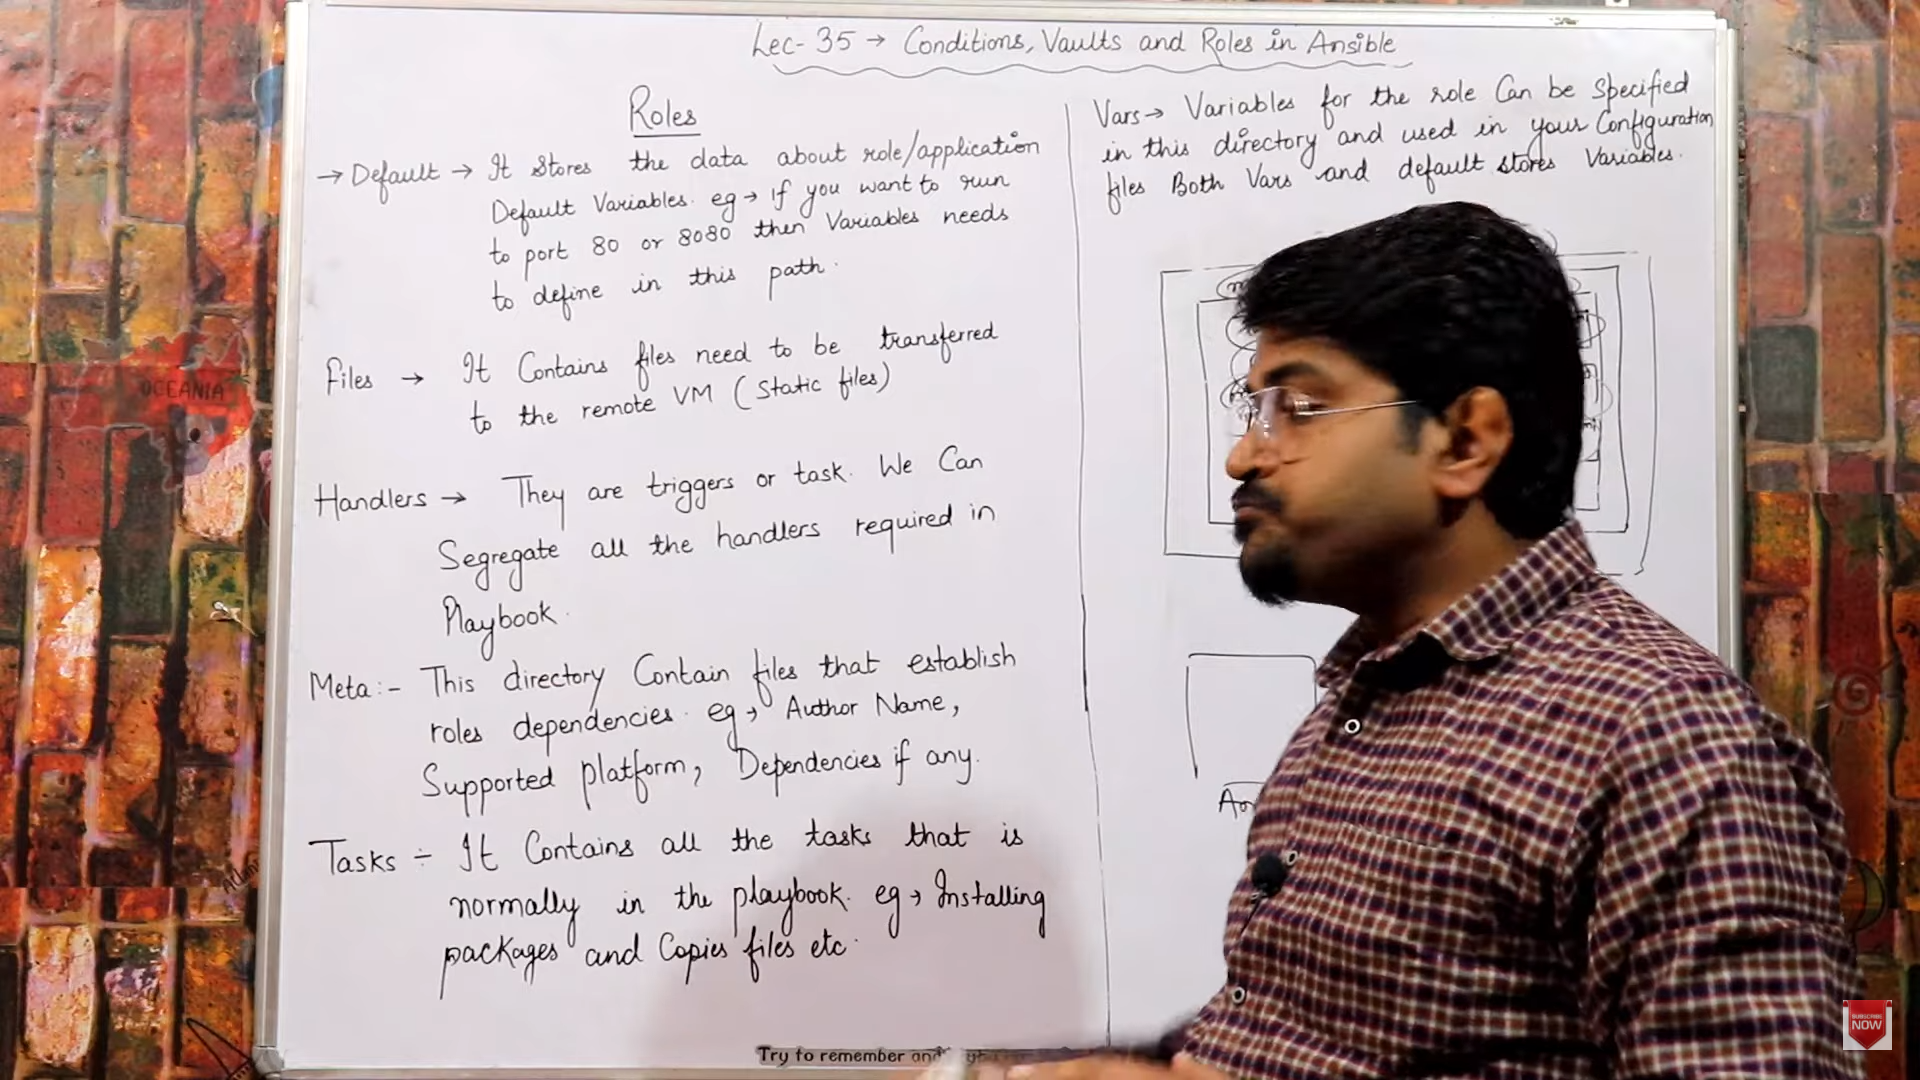 Lec-35 → Conditions, Vaults and Roles in Ansible
Roles
→ Default → It Stores the data about role/application
Default Variables. eg → if you want to run
to port 80 or 8080 then Variables needs
to define in this path.
Files → It Contains files need to be transferred
to the remote VM (Static files)
Handlers → They are triggers or task. We Can
Segregate all the handlers required in
Playbook.
Meta:- This directory Contain files that establish
roles dependencies. eg → Author Name,
Supported platform, Dependencies if any.
Tasks ÷ It Contains all the tasks that is
normally in the playbook. eg → Installing
packages and Copies files etc.
Vars → Variables for the role Can be Specified
in this directory and used in your Configuration
files Both Vars and default stores Variables.
OCEANIA
Try to remember
SUBSCRIBE
NOW